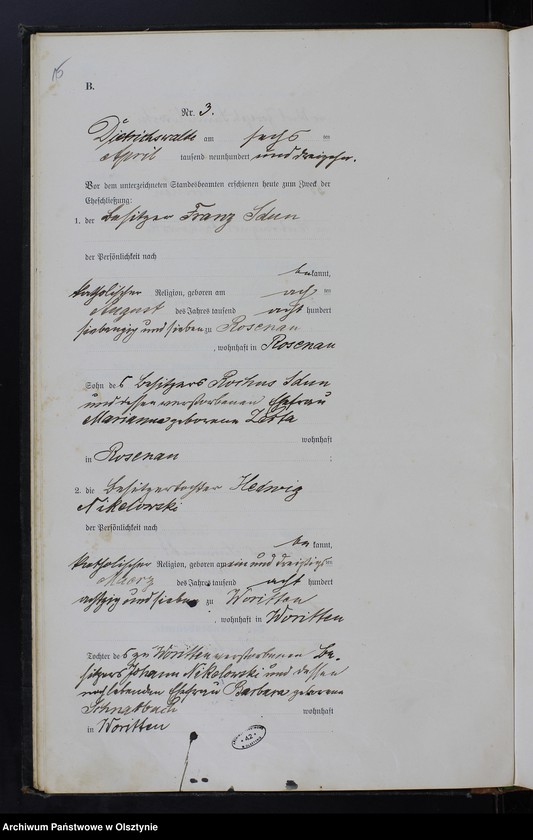 15
B.
Nr. 3.
Dietrichswalde am sechs ten
April tausend neunhundert und dreizehn.
Vor dem unterzeichneten Standesbeamten erschienen heute zum Zweck der
Eheschließung:
1. der Besitzer Franz Sdun
der Persönlichkeit nach
be kannt,
katholischer Religion, geboren am ach ten
August des Jahres tausend acht hundert
siebenzig und sieben zu Rosenau
, wohnhaft in Rosenau
Sohn des Besitzers Rochus Sdun
und dessen verstorbenen Ehefrau
Marianna geborene
wohnhaft
in Rosenau ;
2. die Besitzertochter Hedwig
Nikelowski
der Persönlichkeit nach
be kannt,
katholischer Religion, geboren am ein und dreißigs ten
Maerz des Jahres tausend acht hundert
achtzig und sieben zu Woritten
, wohnhaft in Woritten
Tochter des zu Woritten verstorbenen Be-
sitzers Johann Nikelowski und dessen
noch lebenden Ehefrau Barbara geborene
wohnhaft
in Woritten
42
Archiwum Państwowe w Olsztynie